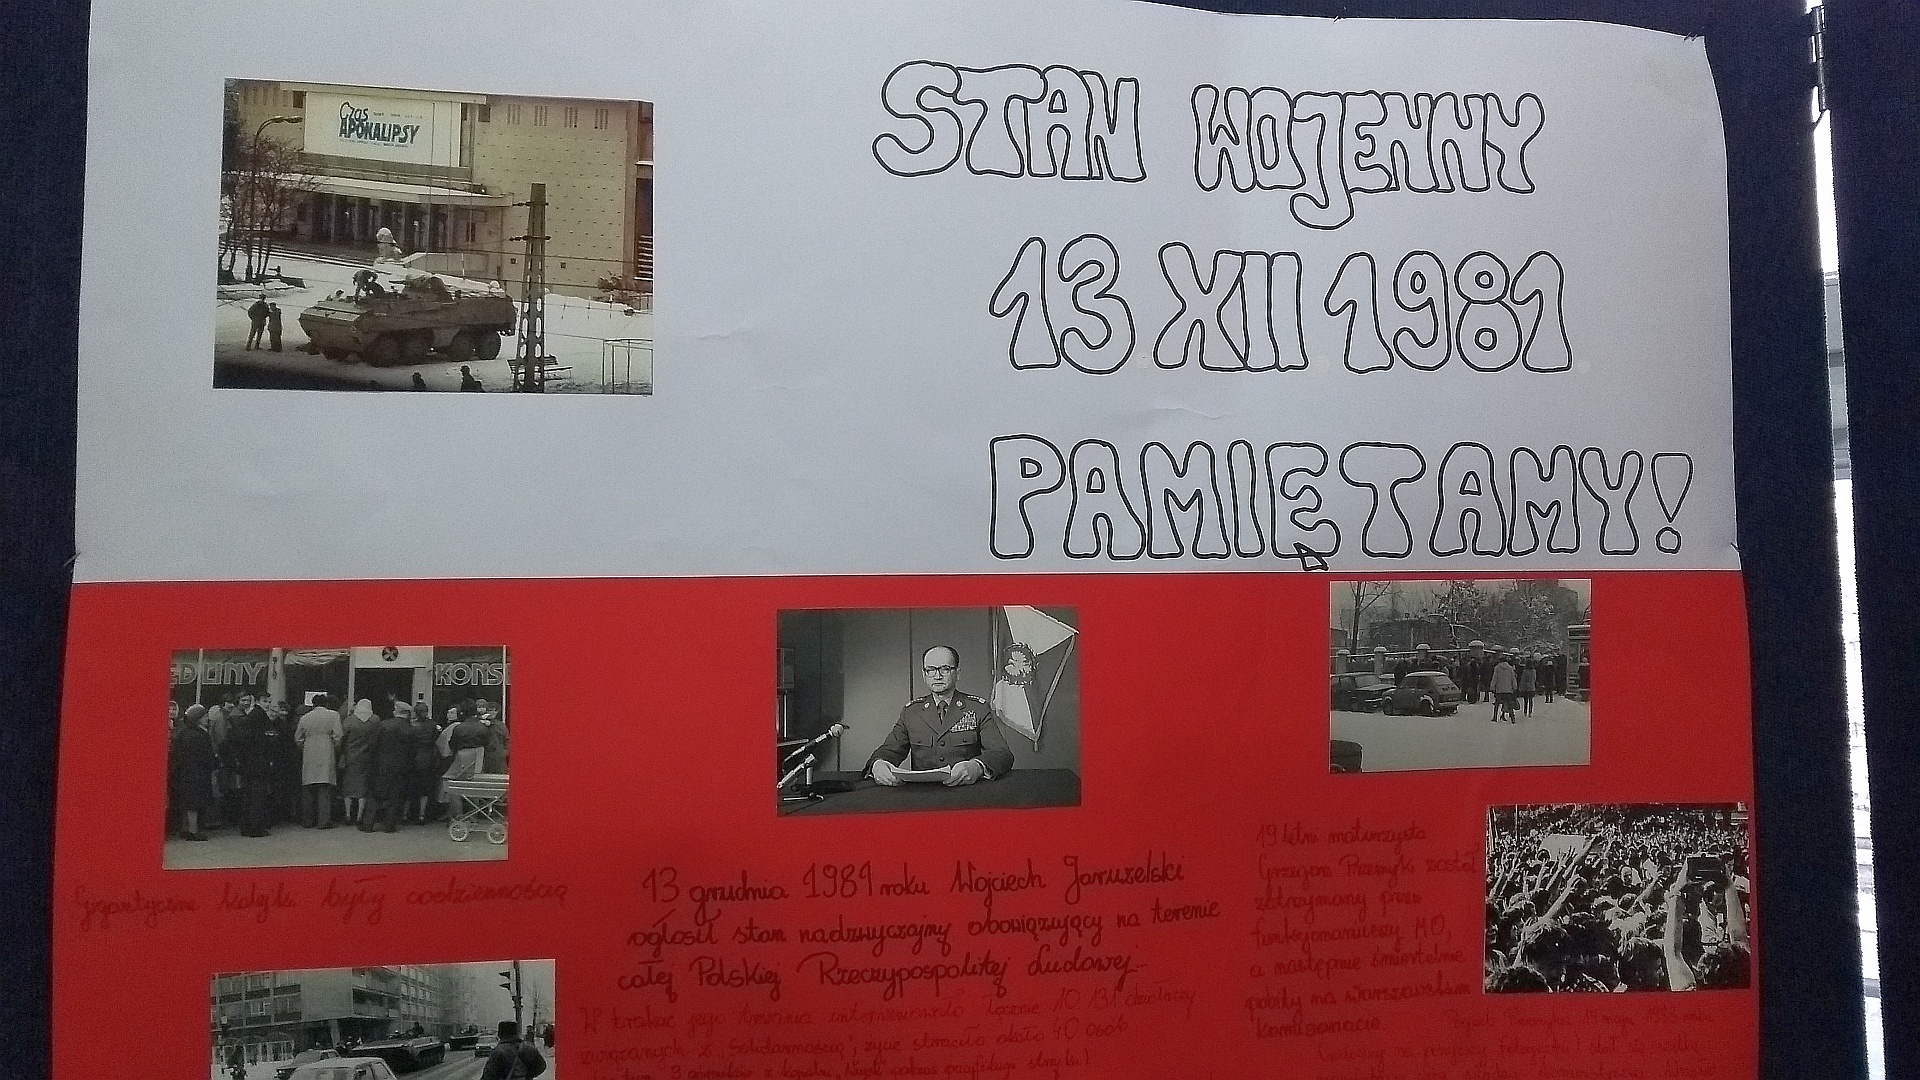 Czas
APOKALIPSY
STAN WOJENNY
13 XII 1981
PAMIĘTAMY!
EDLINY KONS
Gigantyczne kolejki były codziennością
13 grudnia 1981 roku Wojciech Jaruzelski
ogłosił stan nadzwyczajny obowiązujący na terenie
całej Polskiej Rzeczypospolitej Ludowej.
W trakcie jego trwania internowano łącznie 10 131 działaczy
związanych z "Solidarnością", życie straciło około 40 osób
19 letni maturzysta
Grzegorz Przemyk został
zatrzymany przez
funkcjonariuszy MO,
a następnie śmiertelnie
pobity na warszawskim
komisariacie.
Pogrzeb Przemyka 19 maja 1983 roku